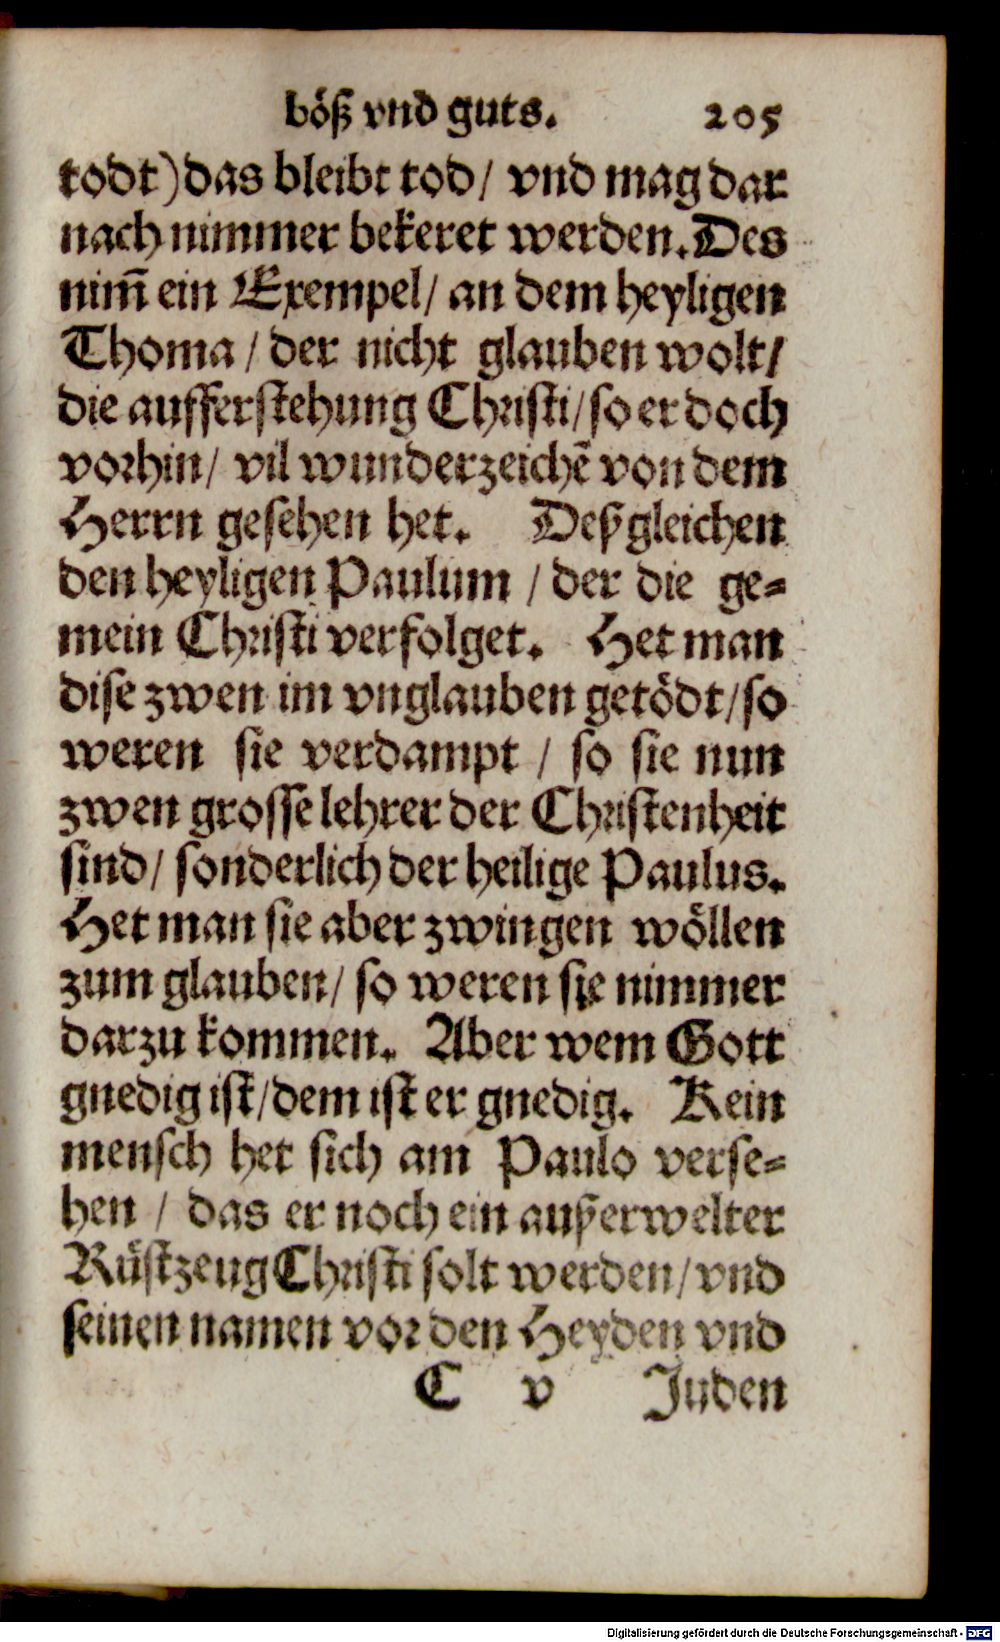 böß vnd guts. 205
todt) das bleibt tod / vnd mag dar
nach nimmer bekeret werden. Des
nim̄ ein Exempel / an dem heyligen
Thoma / der nicht glauben wolt /
die aufferstehung Christi / so er doch
vorhin / vil wunderzeichẽ von dem
Herrn gesehen het. Deßgleichen
den heyligen Paulum / der die ge=
mein Christi verfolget. Het man
dise zwen im vnglauben getödt / so
weren sie verdampt / so sie nun
zwen grosse lehrer der Christenheit
sind / sonderlich der heilige Paulus.
Het man sie aber zwingen wöllen
zum glauben / so weren sie nimmer
darzu kommen. Aber wem Gott
gnedig ist / dem ist er gnedig. Kein
mensch het sich am Paulo verse=
hen / das er noch ein außerwelter
Rüstzeug Christi solt werden / vnd
seinen namen vor den Heyden vnd
C v Juden
Digitalisierung gefördert durch die Deutsche Forschungsgemeinschaft - DFG